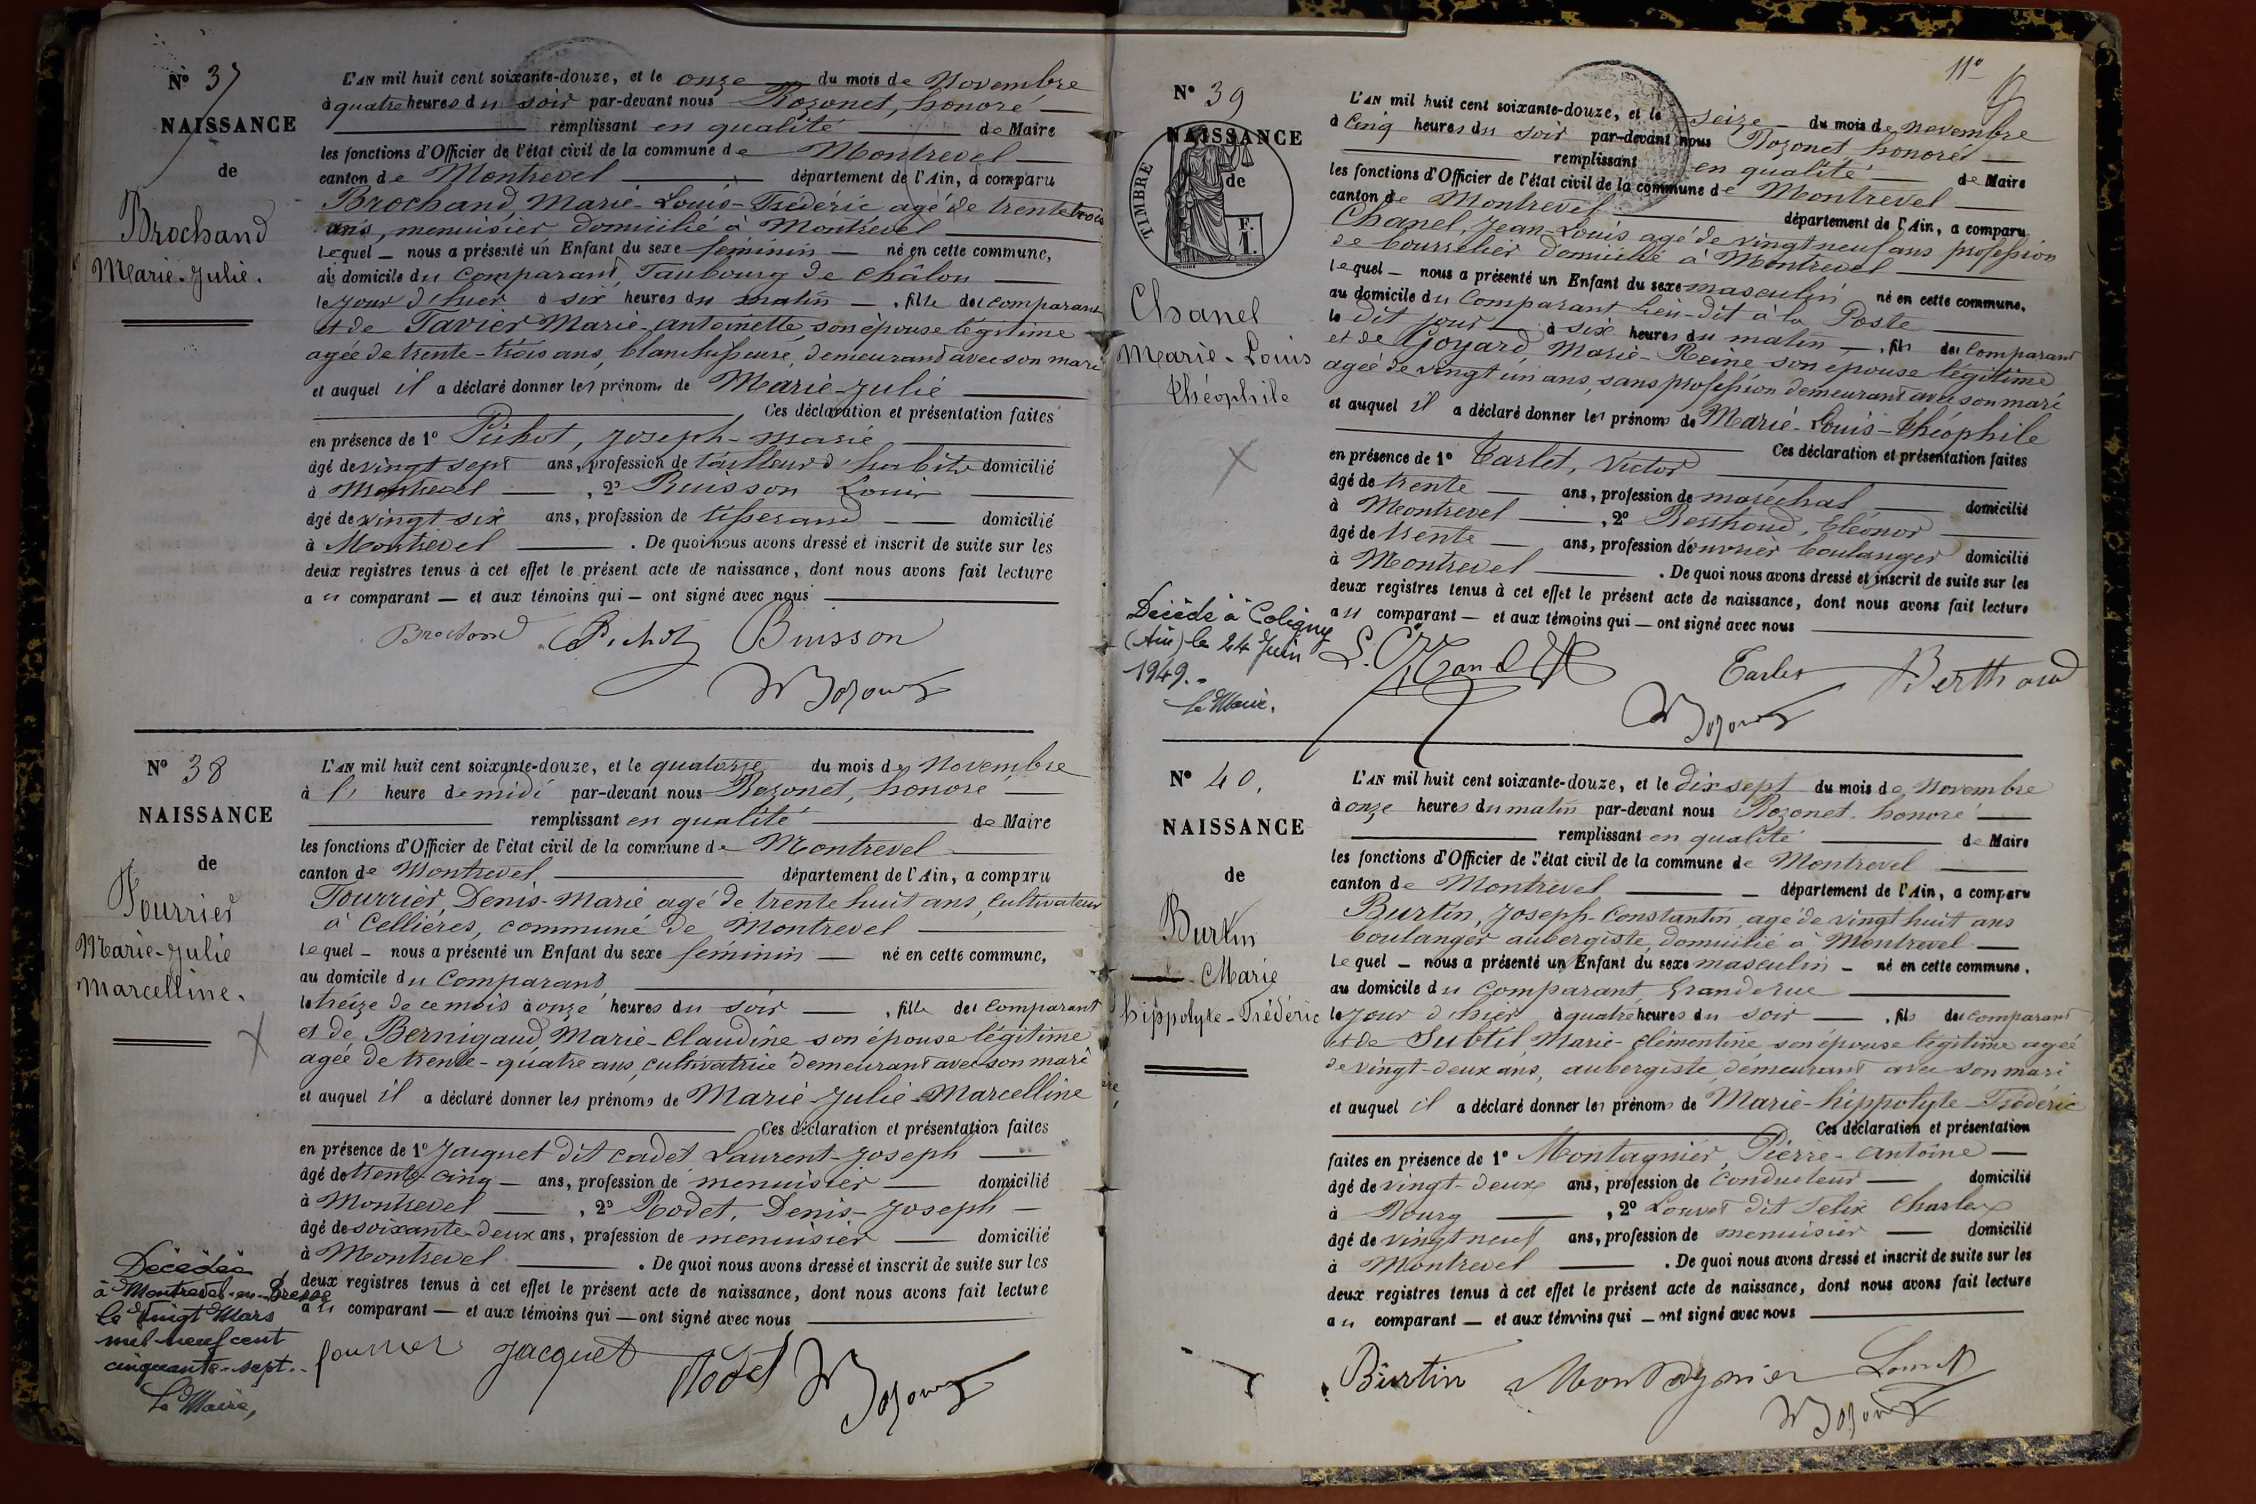 N° 37
NAISSANCE
de
Brochand
Marie-Julie.
L'AN mil huit cent soixante-douze, et le onze du mois de Novembre
à quatre heures du soir par-devant nous Rozonet, honoré
remplissant en qualité de Maire
les fonctions d'Officier de l'état civil de la commune de Montrevel
canton de Montrevel département de l'Ain, a comparu
Brochand, Marie-Louis-Frédéric agé de trente trois
ans, menuisier domicilié à Montrevel
Lequel nous a présenté un Enfant du sexe féminin né en cette commune,
au domicile du comparant, faubourg de châlon
le jour d'hier à six heures du matin, fille du comparant
et de Favier Marie-antoinette, son épouse légitime
agée de trente-trois ans, blanchisseuse, demeurant avec son mari
et auquel il a déclaré donner les prénoms de Marie-Julie
Ces déclaration et présentation faites
en présence de 1° Pichot, Joseph-Marie
âgé de vingt sept ans, profession de tailleur d'habits domicilié
à Montrevel, 2° Buisson Louis
âgé de vingt six ans, profession de tisserand domicilié
à Montrevel. De quoi nous avons dressé et inscrit de suite sur les
deux registres tenus à cet effet le présent acte de naissance, dont nous avons fait lecture
au comparant et aux témoins qui ont signé avec nous
Brochand Pichot Buisson
N° 38
NAISSANCE
de
Fourrier
Marie-Julie
Marcelline.
L'AN mil huit cent soixante-douze, et le quatorze du mois de Novembre
à l' heure de midi par-devant nous Rozonet, honoré
remplissant en qualité de Maire
les fonctions d'Officier de l'état civil de la commune de Montrevel
canton de Montrevel département de l'Ain, a comparu
Fourrier, Denis-Marie agé de trente huit ans, cultivateur
à Cellières, commune de Montrevel
Lequel nous a présenté un Enfant du sexe féminin né en cette commune,
au domicile du comparant
le treize de ce mois à onze heures du soir, fille du comparant
et de Bernigaud Marie-Claudine son épouse légitime
agée de trente-quatre ans, cultivatrice demeurant avec son mari
et auquel il a déclaré donner les prénoms de Marie-Julie-Marcelline
Ces déclaration et présentation faites
en présence de 1° Jacquet dit cadet Laurent-Joseph
âgé de trente-cinq ans, profession de menuisier domicilié
à Montrevel, 2° Rodet, Denis-Joseph
âgé de soixante-deux ans, profession de menuisier domicilié
à Montrevel. De quoi nous avons dressé et inscrit de suite sur les
deux registres tenus à cet effet le présent acte de naissance, dont nous avons fait lecture
au comparant et aux témoins qui ont signé avec nous
Décédée
à Montrevel-en-Bresse
le vingt Mars
mil neuf cent
cinquante-sept.
Le Maire,
fourrier Jacquet Rodet
11e
N° 39
NAISSANCE
de
TIMBRE
F.
1.
Chanel
Marie-Louis
théophile
L'AN mil huit cent soixante-douze, et le seize du mois de novembre
à cinq heures du soir par-devant nous Rozonet honoré
remplissant en qualité de Maire
les fonctions d'Officier de l'état civil de la commune de Montrevel
canton de Montrevel département de l'Ain, a comparu
Chanel, Jean-Louis agé de vingt neuf ans profession
de bourrelier domicilié à Montrevel
Lequel nous a présenté un Enfant du sexe masculin né en cette commune.
au domicile du comparant, lieu-dit à la Poste
le dit jour à six heures du matin, fils du comparant
et de Goyard, Marie-Reine son épouse légitime
agée de vingt un ans, sans profession demeurant avec son mari
et auquel il a déclaré donner les prénoms de Marie-Louis-théophile
Ces déclaration et présentation faites
en présence de 1° Tarlet, Victor
âgé de trente ans, profession de maréchal domicilié
à Montrevel, 2° Berthoud, Eléonor
âgé de trente ans, profession d'ouvrier boulanger domicilié
à Montrevel. De quoi nous avons dressé et inscrit de suite sur les
deux registres tenus à cet effet le présent acte de naissance, dont nous avons fait lecture
au comparant et aux témoins qui ont signé avec nous
Décédé à Coligny
(Ain) le 24 Juin
1949.
Le Maire.
L. Chanel Tarlet Berthoud
N° 40.
NAISSANCE
de
Burtin
Marie
hippolyte-Frédéric
L'AN mil huit cent soixante-douze, et le dix sept du mois de Novembre
à onze heures du matin par-devant nous Rozonet. honoré
remplissant en qualité de Maire
les fonctions d'Officier de l'état civil de la commune de Montrevel
canton de Montrevel département de l'Ain, a comparu
Burtin, Joseph-Constantin, agé de vingt huit ans
boulanger aubergiste, domicilié à Montrevel
Lequel nous a présenté un Enfant du sexe masculin né en cette commune.
au domicile du comparant, Grande rue
le jour d'hier à quatre heures du soir, fils du comparant
et de Subtil Marie-Clémentine son épouse légitime agée
de vingt-deux ans, aubergiste, demeurant avec son mari
et auquel il a déclaré donner les prénoms de Marie-hippolyte-Frédéric
Ces déclaration et présentation
faites en présence de 1° Montagnier, Pierre-antoine
âgé de vingt-deux ans, profession de conducteur domicilié
à Bourg, 2° Louvet dit Felix Charles
âgé de vingt neuf ans, profession de menuisier domicilié
à Montrevel. De quoi nous avons dressé et inscrit de suite sur les
deux registres tenus à cet effet le présent acte de naissance, dont nous avons fait lecture
au comparant et aux témoins qui ont signé avec nous
Burtin Montagnier Louvet